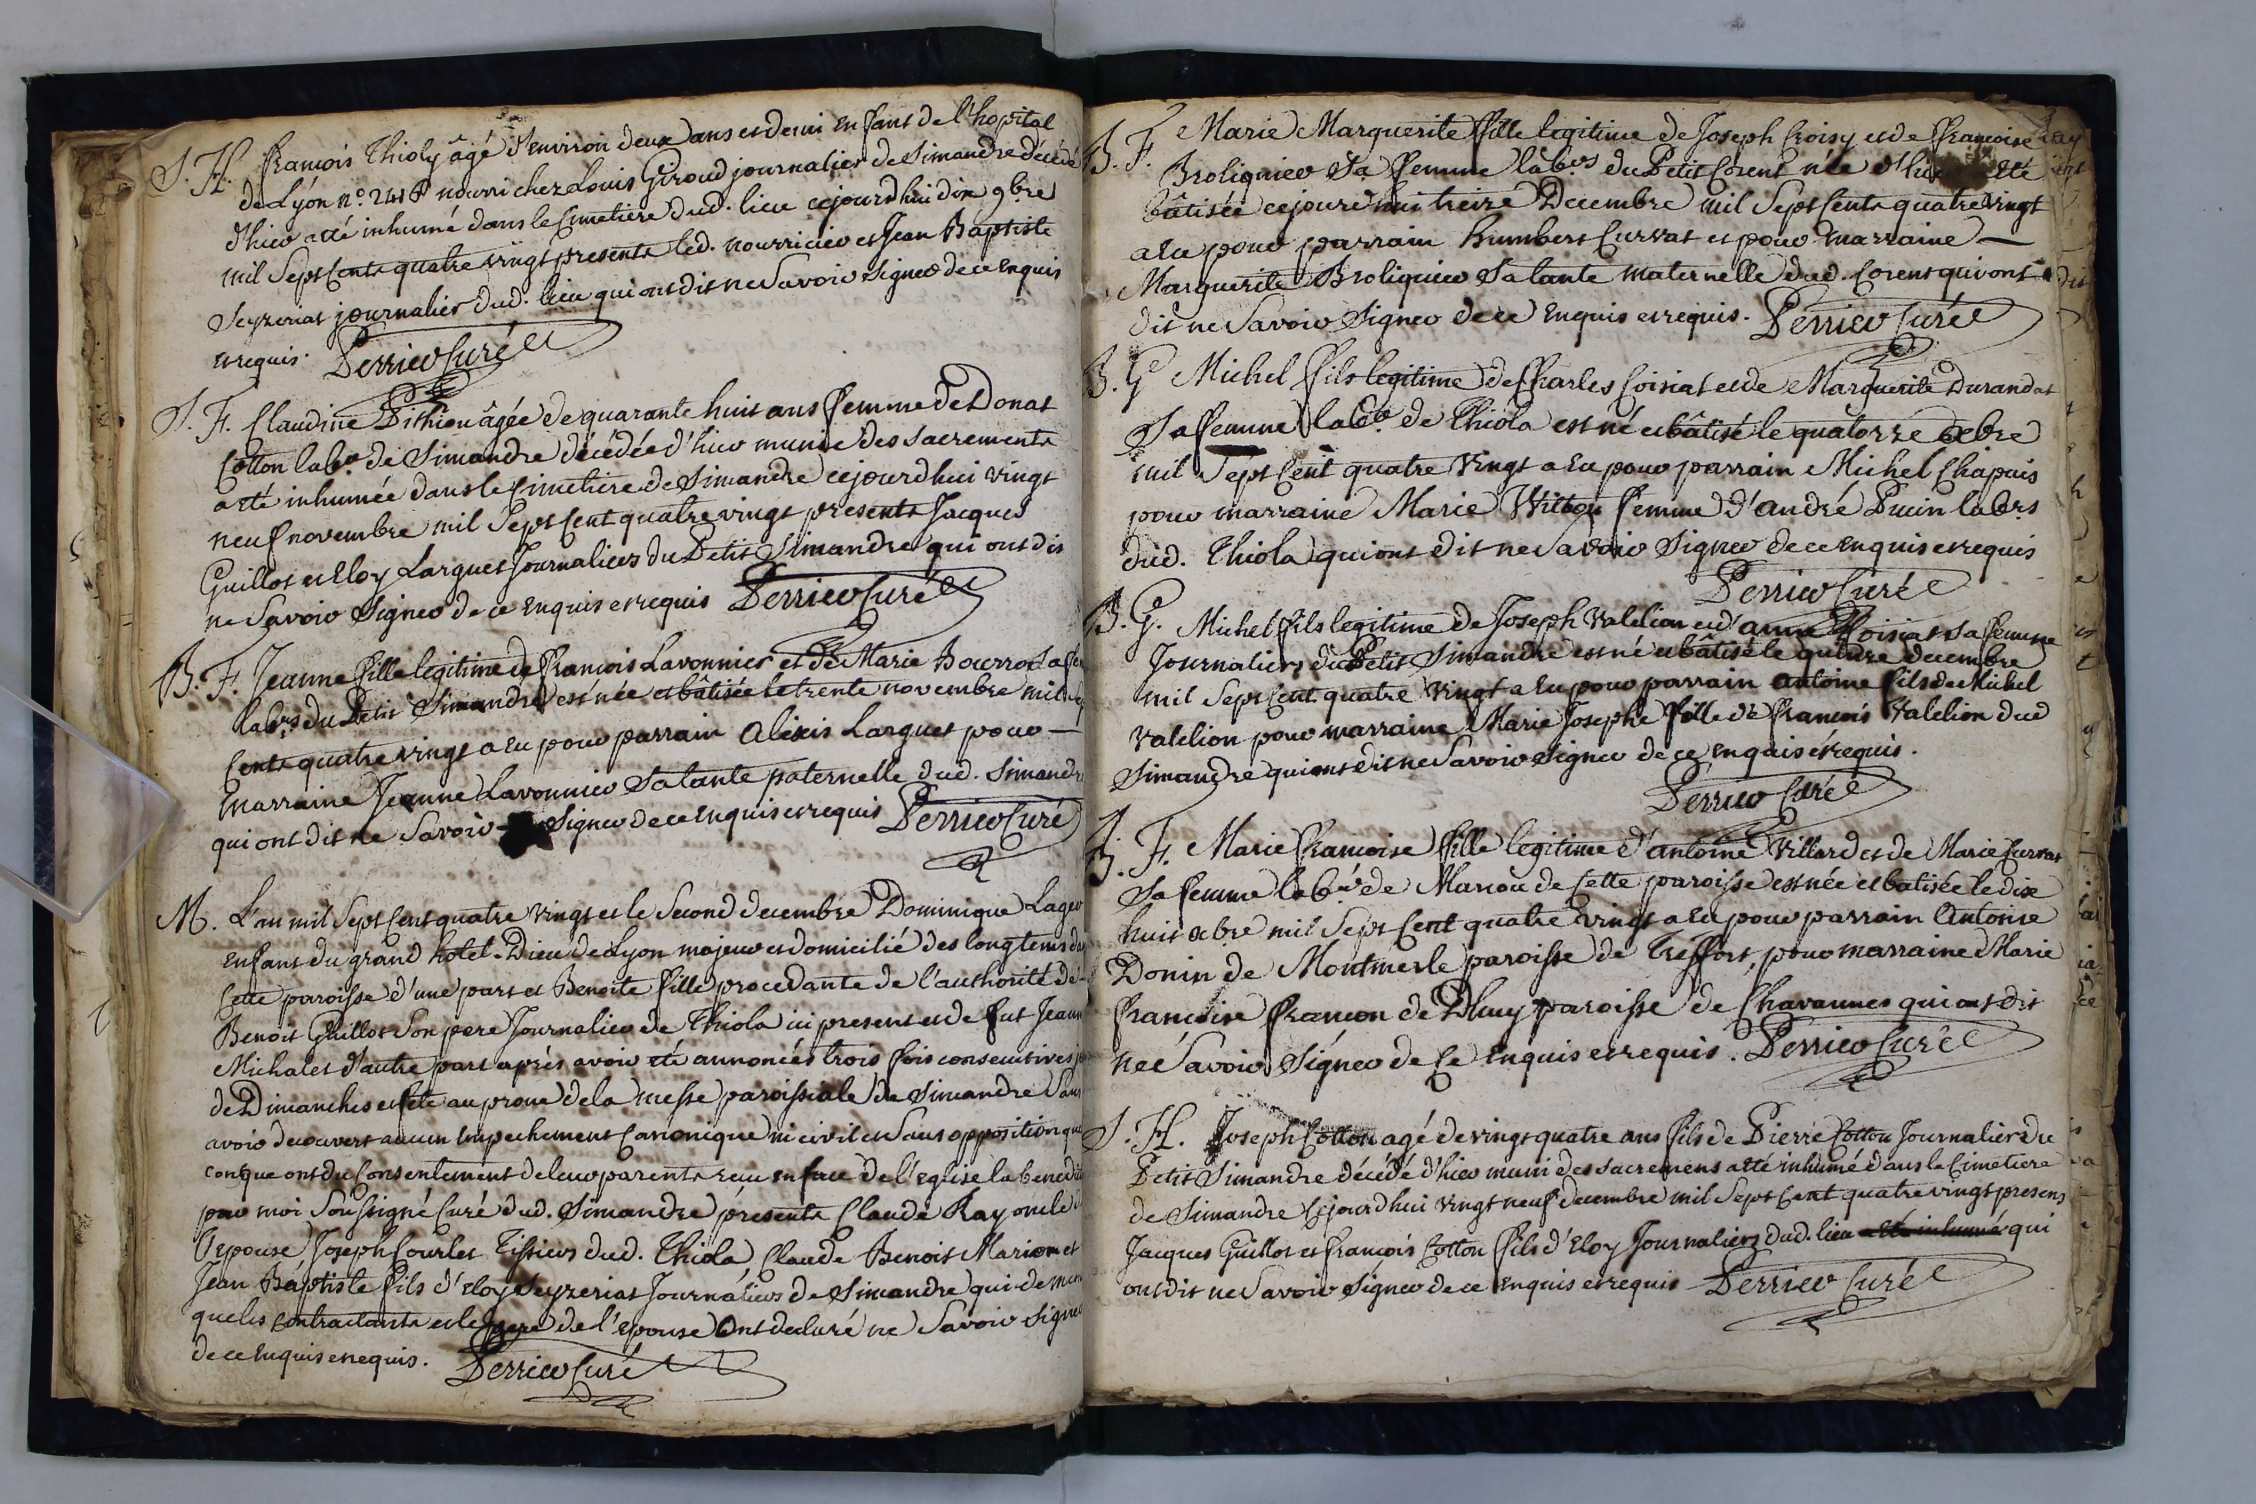 S. H. françois Thioly âgé d'environ deux ans et demi enfant de l'hopital
de Lyon n.º 2418 nourri chez Louis Giroud journalier de Simandre décédé
d'hier a été inhumé dans le Cimetiere dud. lieu cejourd'hui dix 9.bre
mil Sept Cents quatre vingt presents led. nourricier et Jean Baptiste
Seyzeriat journalier dud. lieu qui ont dit ne Savoir Signer de ce enquis
et requis. Perrier Curé
S. F. Claudine Pithion âgée de quarante huit ans femme de Donat
Cotton lab.r de Simandre décédée d'hier munie des sacrements
a été inhumée dans le Cimetiere de Simandre cejourd'hui vingt
neuf novembre mil Sept Cent quatre vingt presents Jacques
Guillot et Eloy Larguet Journaliers du Petit Simandre qui ont dit
ne Savoir Signer de ce enquis et requis Perrier Curé
B. F. Jeanne fille legitime de françois Lavonnier et de Marie Bourrod sa
lab.rs du Petit Simandre est née et bâtisée le trente novembre mil
Cents quatre vingt a eu pour parrain Alexis Larguet pour —
marraine Jeanne Lavonnier Sa tante paternelle dud. Simandre
qui ont dit ne Savoir Signer de ce enquis et requis Perrier Curé
M. L'an mil Sept Cent quatre vingt et le Second decembre Dominique Lager
enfant du grand hotel-Dieu de Lyon majeur et domicilié des longtems
Cette paroisse d'une part et Benoite fille procedante de l'authorité de
Benoit Guillot Son pere Journalier de Thiola ici present et de fut Jeanne
Michalet d'autre part après avoir été annoncés trois fois consecutives
de Dimanches et fete au prone de la messe paroissiale de Simandre Sans
avoir decouvert aucun empechement Canonique ni civil et Sans opposition quel
conque ont du Consentement de leur parents recu en face de l'eglise la
par moi Soussigné Curé dud. Simandre presents Claude Ray oncle
l'epouse Joseph Courlet Tissiers dud. Thiola, Claude Benoit Marion et
Jean Baptiste fils d'Eloy Seyzeriat Journaliers de Simandre qui de meme
que les contractants et le pere de l'epouse ont declaré ne Savoir Signer
de ce enquis et requis. Perrier Curé
B. F. Marie Marguerite fille legitime de Joseph Croisy et de françoise
Broliquier Sa femme lab.rs du Petit Corent née d'hier été
bâtisée cejourd'hui treize Decembre mil Sept Cents quatre vingt
a eu pour parrain Humbert Curvat et pour marraine —
Marguerite Broliquier Sa tante maternelle dud. Corent qui ont
dit ne Savoir Signer de ce enquis et requis. Perrier Curé
B. G Michel fils legitime de Charles Coisiat et de Marguerite Durandat
Sa femme lab.rs de Thiola est né et bâtisé le quatorze Xbre
mil Sept Cent quatre vingt a eu pour parrain Michel Chapuis
pour marraine Marie Vitton femme d'André Puvin lab.rs
dud. Thiola qui ont dit ne Savoir Signer de ce enquis et requis
Perrier Curé
B. G. Michel fils legitime de Joseph Valelion et d'anne Coisiat sa femme
Journaliers du Petit Simandre est né et bâtisé le quinze decembre
mil Sept Cent quatre vingt a eu pour parrain antoine fils de Michel
Valelion pour marraine Marie Josephe fille de françois Valelion dud
Simandre qui ont dit ne Savoir Signer de ce enquis et requis.
Perrier Curé
B. F. Marie françoise fille legitime d'antoine Villard et de Marie Curvat
Sa femme lab.rs de Manou de Cette paroisse est née et batisée le dix
huit Xbre mil Sept Cent quatre vingt a eu pour parrain Antoine
Donin de Montmerle paroisse de Treffort, pour marraine Marie
françoise françon de Dhuy paroisse de Chavannes qui ont dit
ne Savoir Signer de Ce enquis et requis. Perrier Curé
S. H. Joseph Cotton agé de vingt quatre ans fils de Pierre Cotton Journalier du
Petit Simandre décédé d'hier muni des sacremens a été inhumé dans le Cimetiere
de Simandre Cejourd'hui vingt neuf decembre mil Sept Cent quatre vingt presens
Jacques Guillot et françois Cotton fils d'Eloy Journaliers dud. lieu a été inhumé qui
ont dit ne Savoir Signer de ce enquis et requis - Perrier Curé